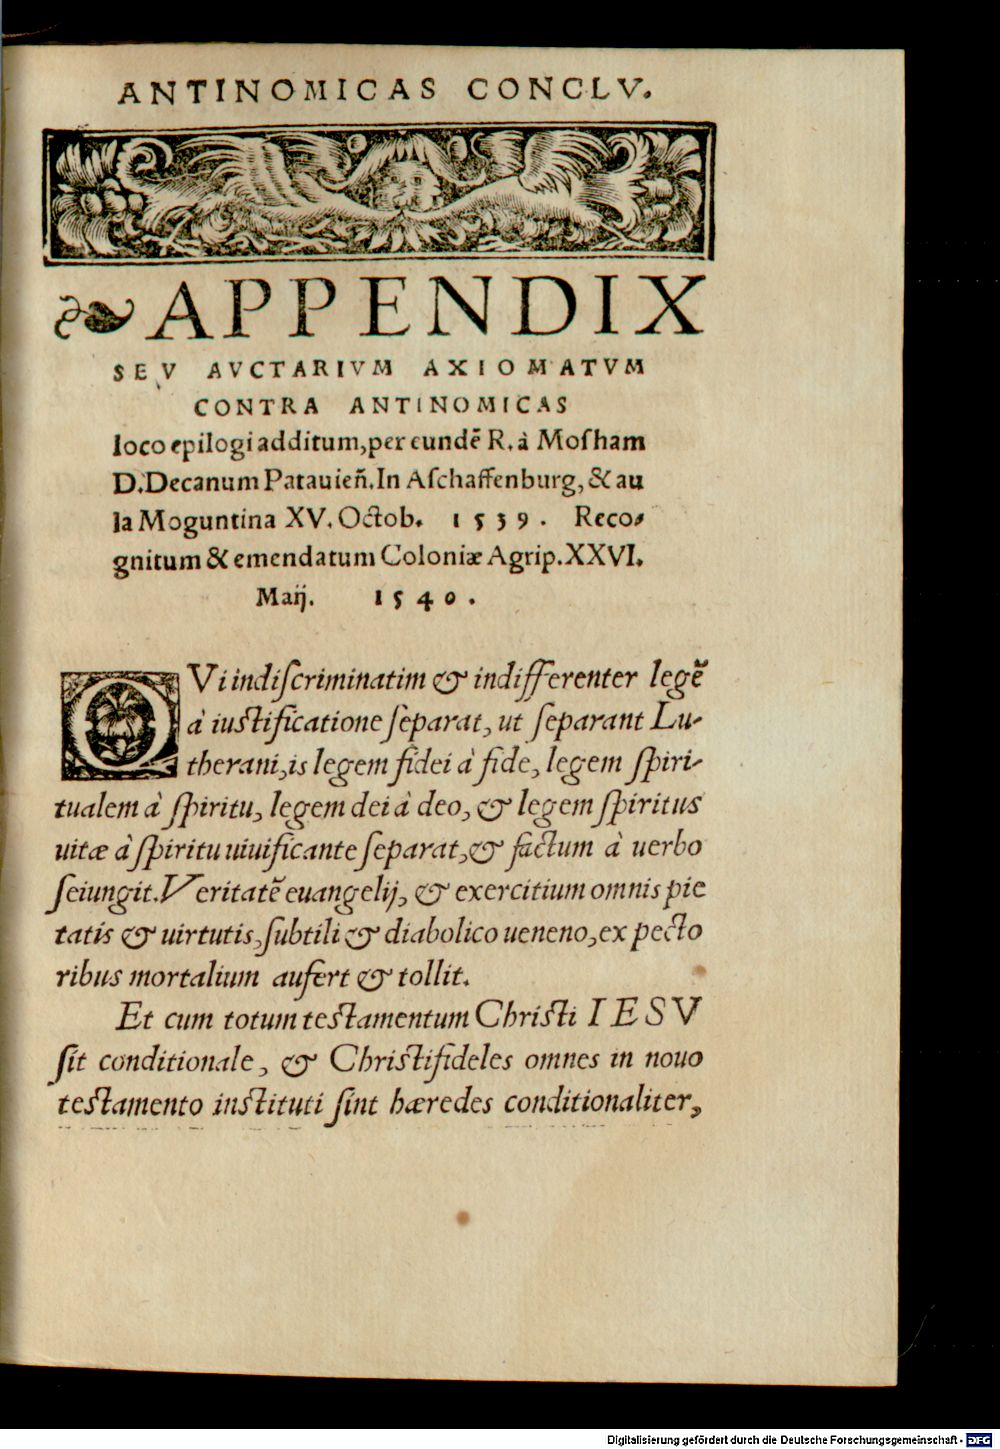 ANTINOMICAS CONCLV.
❧ APPENDIX
SEV AVCTARIVM AXIOMATVM
CONTRA ANTINOMICAS
loco epilogi additum, per eundē R. à Moſham
D. Decanum Patauieñ. In Aſchaffenburg, & au
la Moguntina XV. Octob. 1539. Reco-
gnitum & emendatum Coloniæ Agrip. XXVI.
Maij. 1540.
QVi indiſcriminatim & indifferenter legē
à iuſtificatione ſeparat, ut ſeparant Lu-
therani, is legem fidei à fide, legem ſpiri-
tualem à ſpiritu, legem dei à deo, & legem ſpiritus
uitæ à ſpiritu uiuificante ſeparat, & factum à uerbo
ſeiungit. Veritatē euangelij, & exercitium omnis pie
tatis & uirtutis, ſubtili & diabolico ueneno, ex pecto
ribus mortalium aufert & tollit.
Et cum totum teſtamentum Chriſti IESV
ſit conditionale, & Chriſtifideles omnes in nouo
teſtamento inſtituti ſint hæredes conditionaliter,
Digitalisierung gefördert durch die Deutsche Forschungsgemeinschaft - DFG